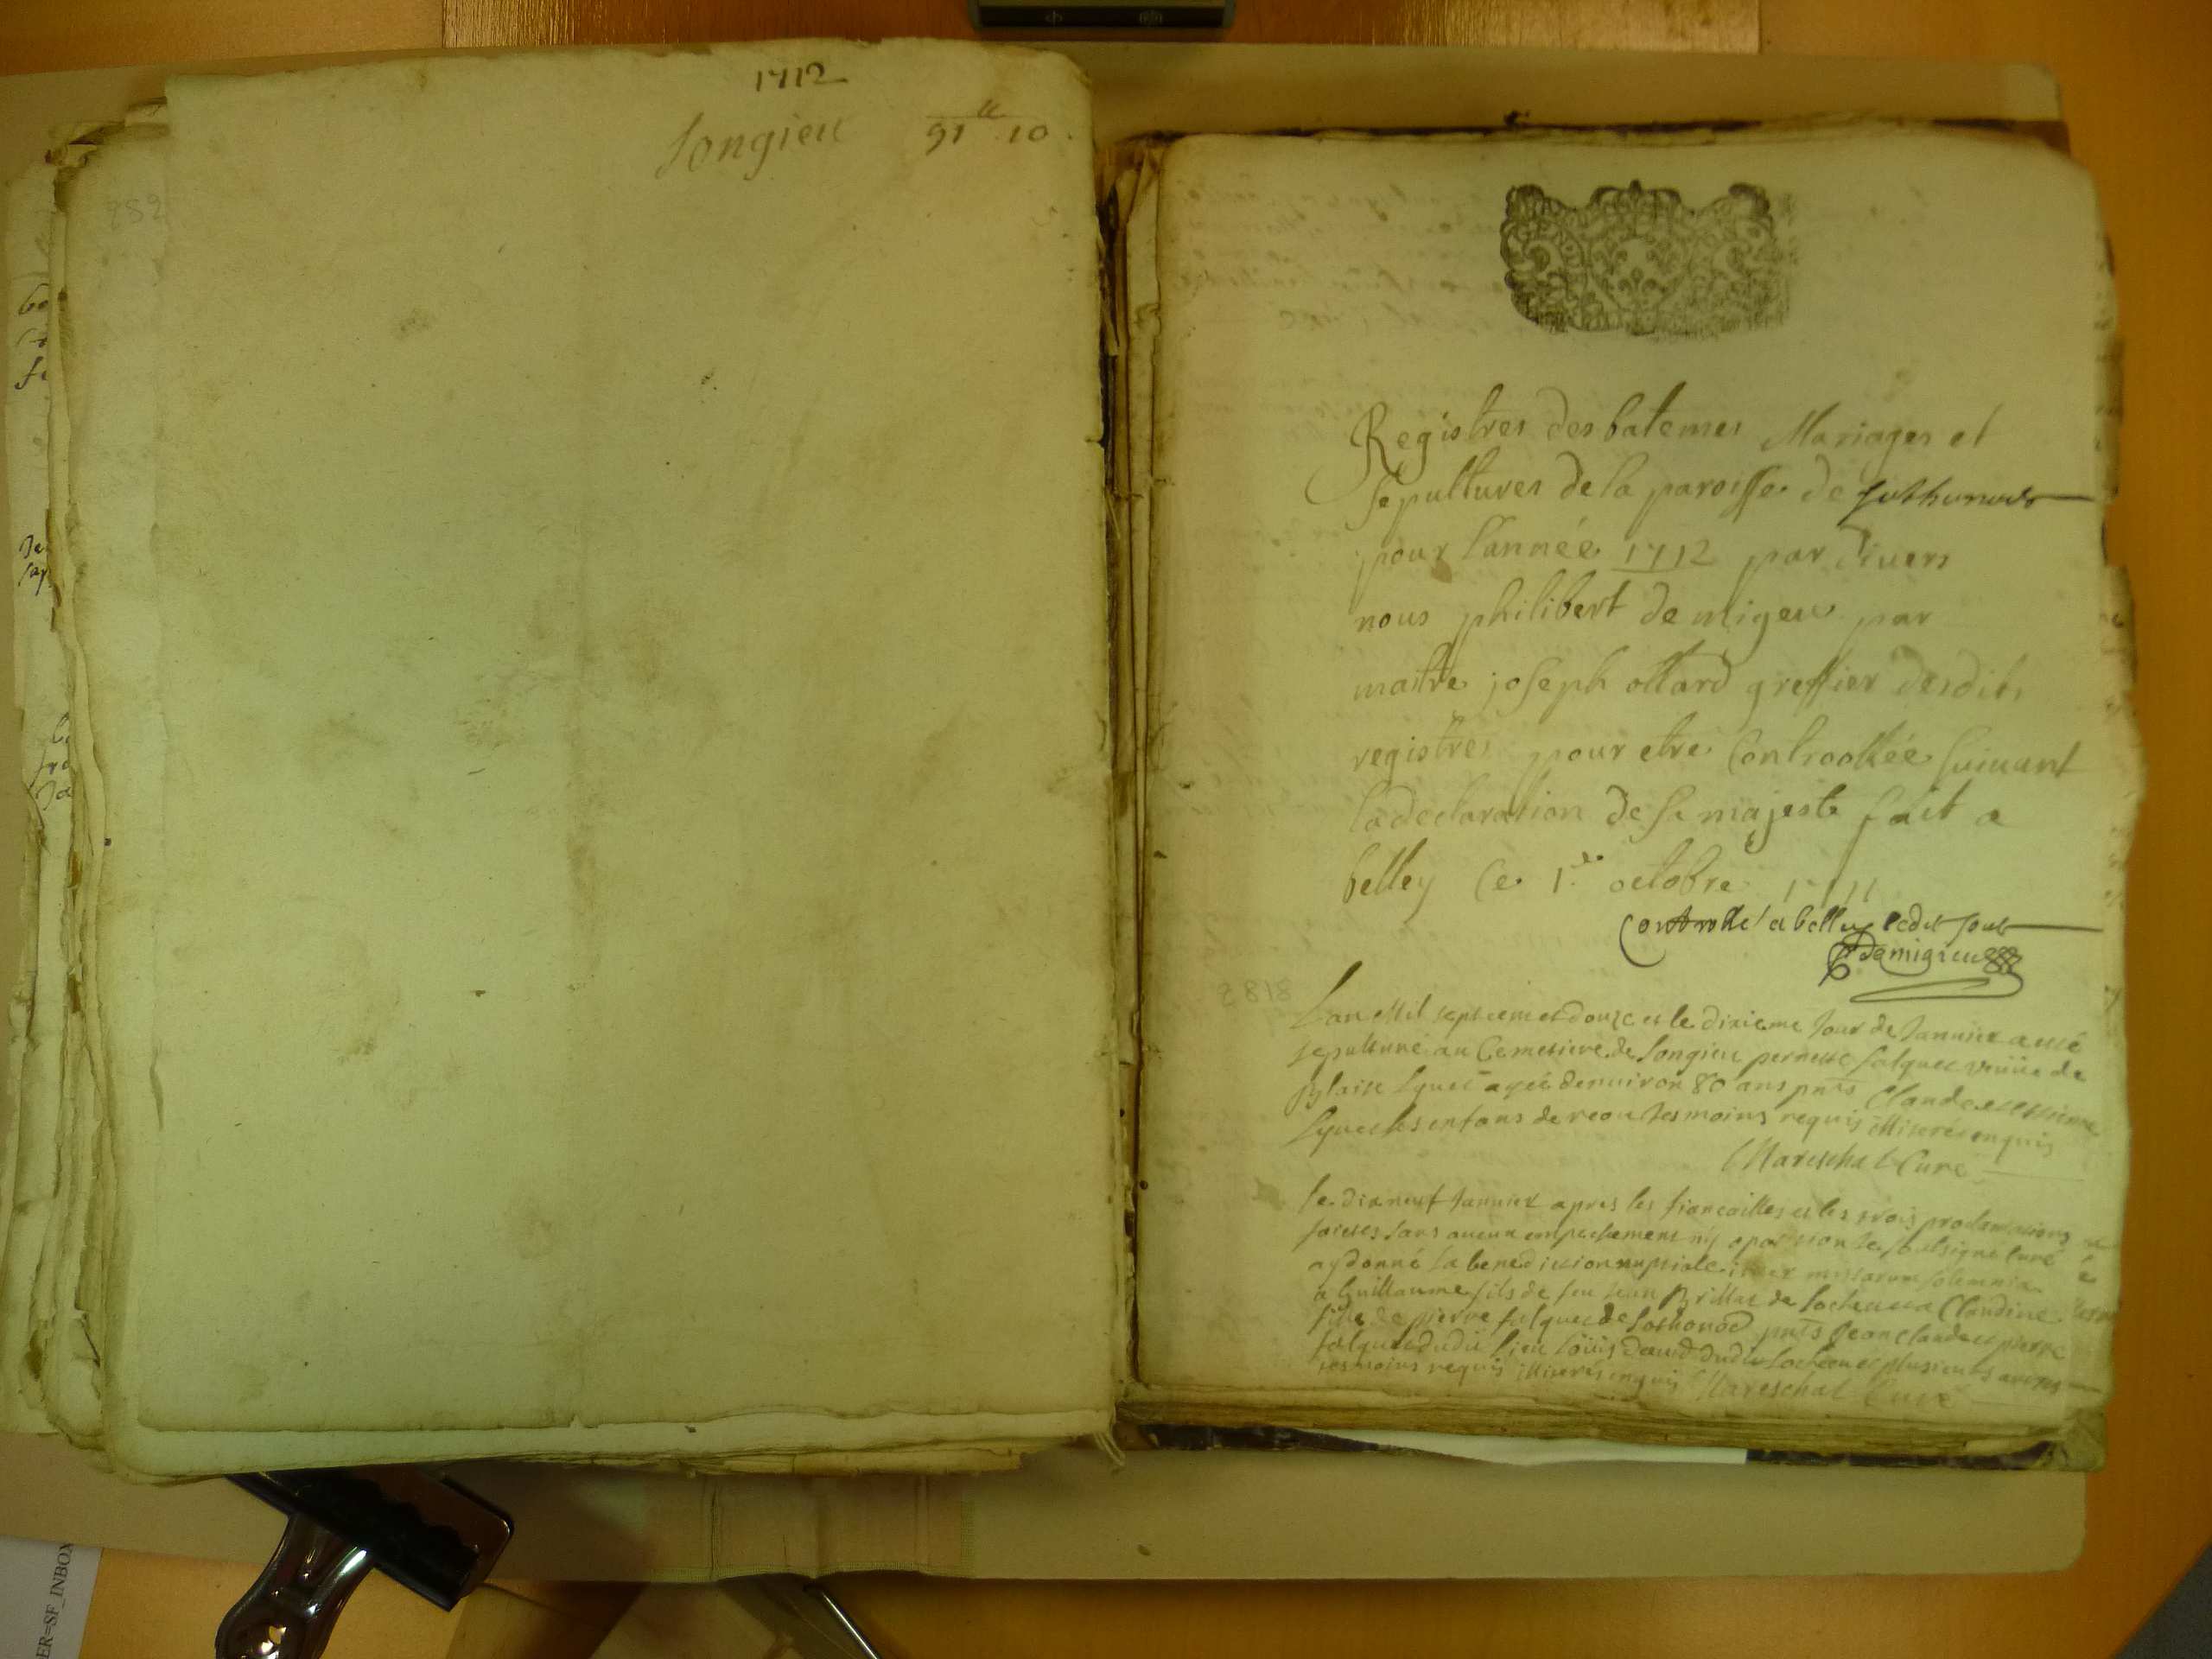 1712
Songieu 91 10.
Registres des batemes Mariages et
Sepultures de la paroisse de
pour l'année 1712 par divers
nous philibert de migieu par
maitre joseph ottard greffier desdits
registres pour etre Controollée suivant
la declaration de sa majeste fait a
belley Ce 1. octobre 1711
Controllé a belley ledit jour
Demigieu
2818
L'an Mil sept cent et douze et le dixieme Jour de Janvier a esté
sepulturé au Cemetiere de Songieu pernette falquet veuve de
Blaise agée denviron 80 ans pnts Claude et
les enfans de tesmoins requis illiteres enquis
Mareschal Curé
Le dixneuf Janvier apres les fiancailles et les trois proclamations
faictes sans aucun empeschement ny opposition Je soubsigné Curé
ay donné la benediction nuptiale inter missarum solemnia
a Guillaume fils de feu Jean Brillat de a Claudine
fille de pierre falquet de Lothonod pnts Jean Claude et pierre
falquet dudit Lieu Loüis David dudit et plusieurs autres
tesmoins requis illiteres enquis Mareschal Curé
ER=SF_INBOX